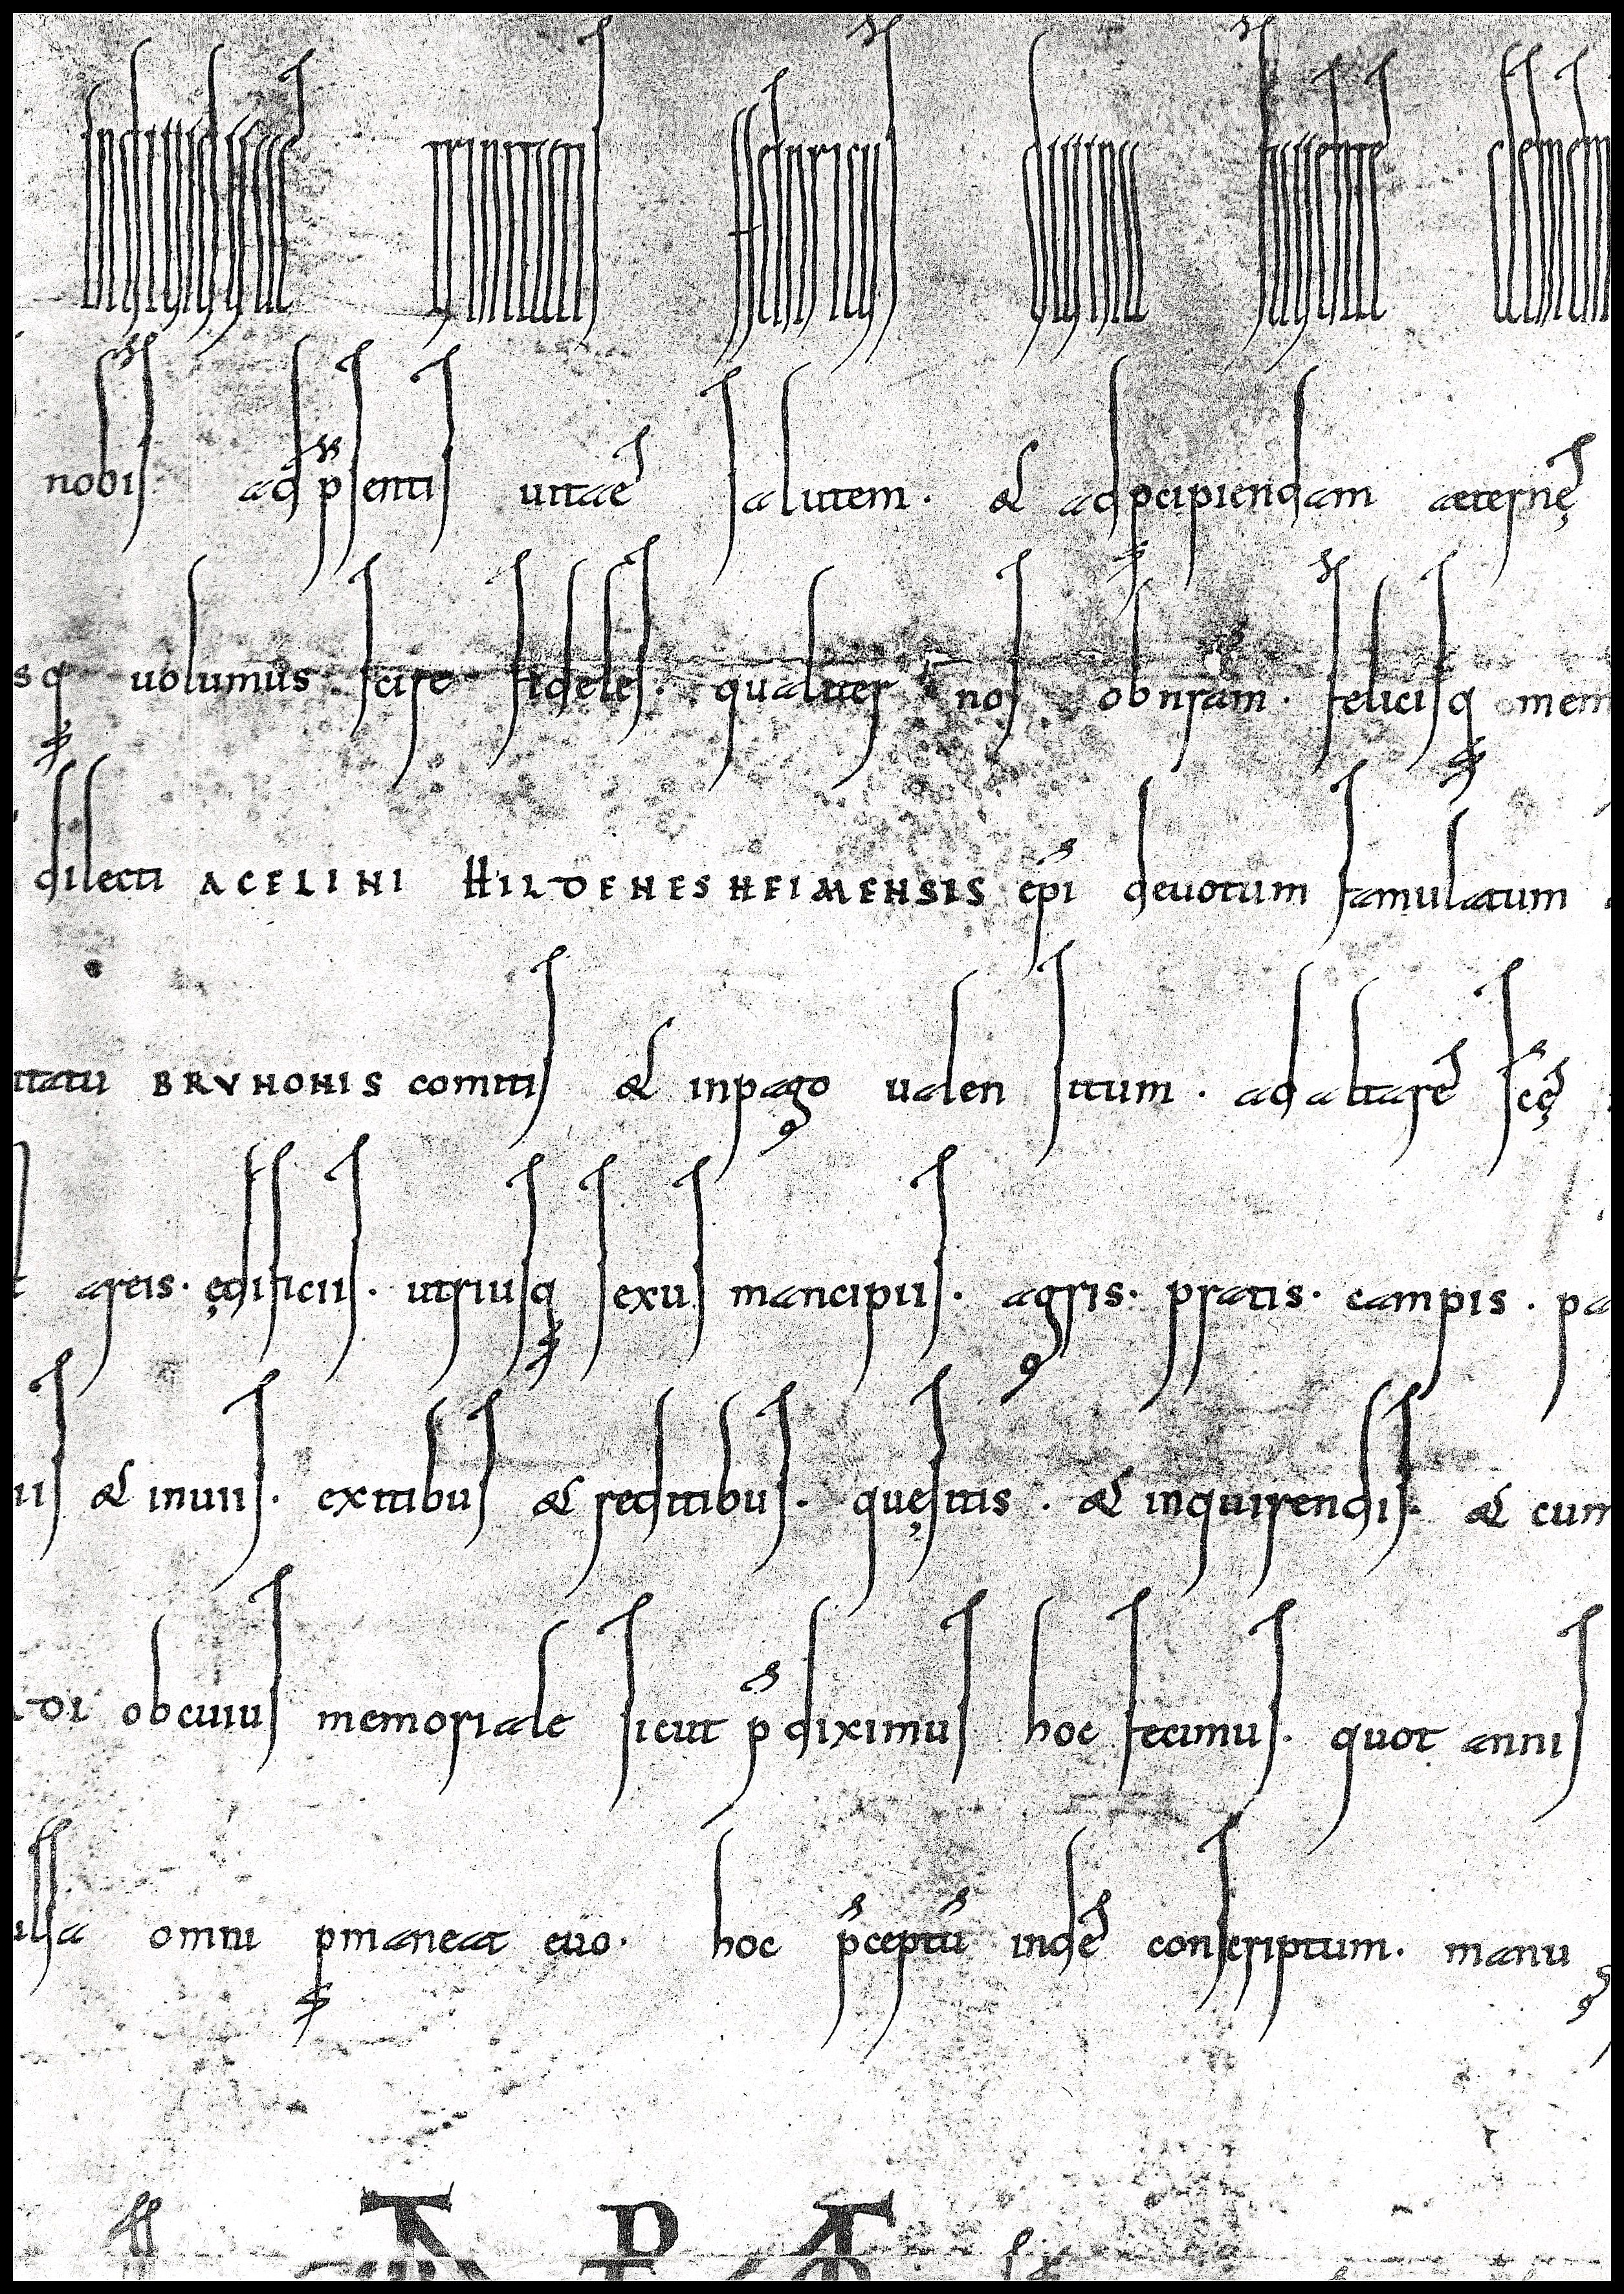 indiuiduę trinitatis heinricus diuina fauente clemen
nobis ad p̄sentis uitae salutem. & ad pcipiendam aeternę
sq; uolumus scire fideles. qualiter nos ob nr̄am. felicisq; mem
dilecti ACELINI HILDENESHEIMENSIS ep̄i deuotum famulatum
itatu BRVNONIS comitis & in pago ualen situm. ad altare sc̄ę
areis. ędificiis. utriusq; sexus mancipiis. agris. pratis. campis. pa
iis & inuiis. exitibus & reditibus. quęsitis. & inquirendis. & cum
DI ob cuius memoriale sicut p̄diximus hoc fecimus. quot annis
ulsa omni pmaneat euo. hoc p̄ceptū inde conscriptum. manu